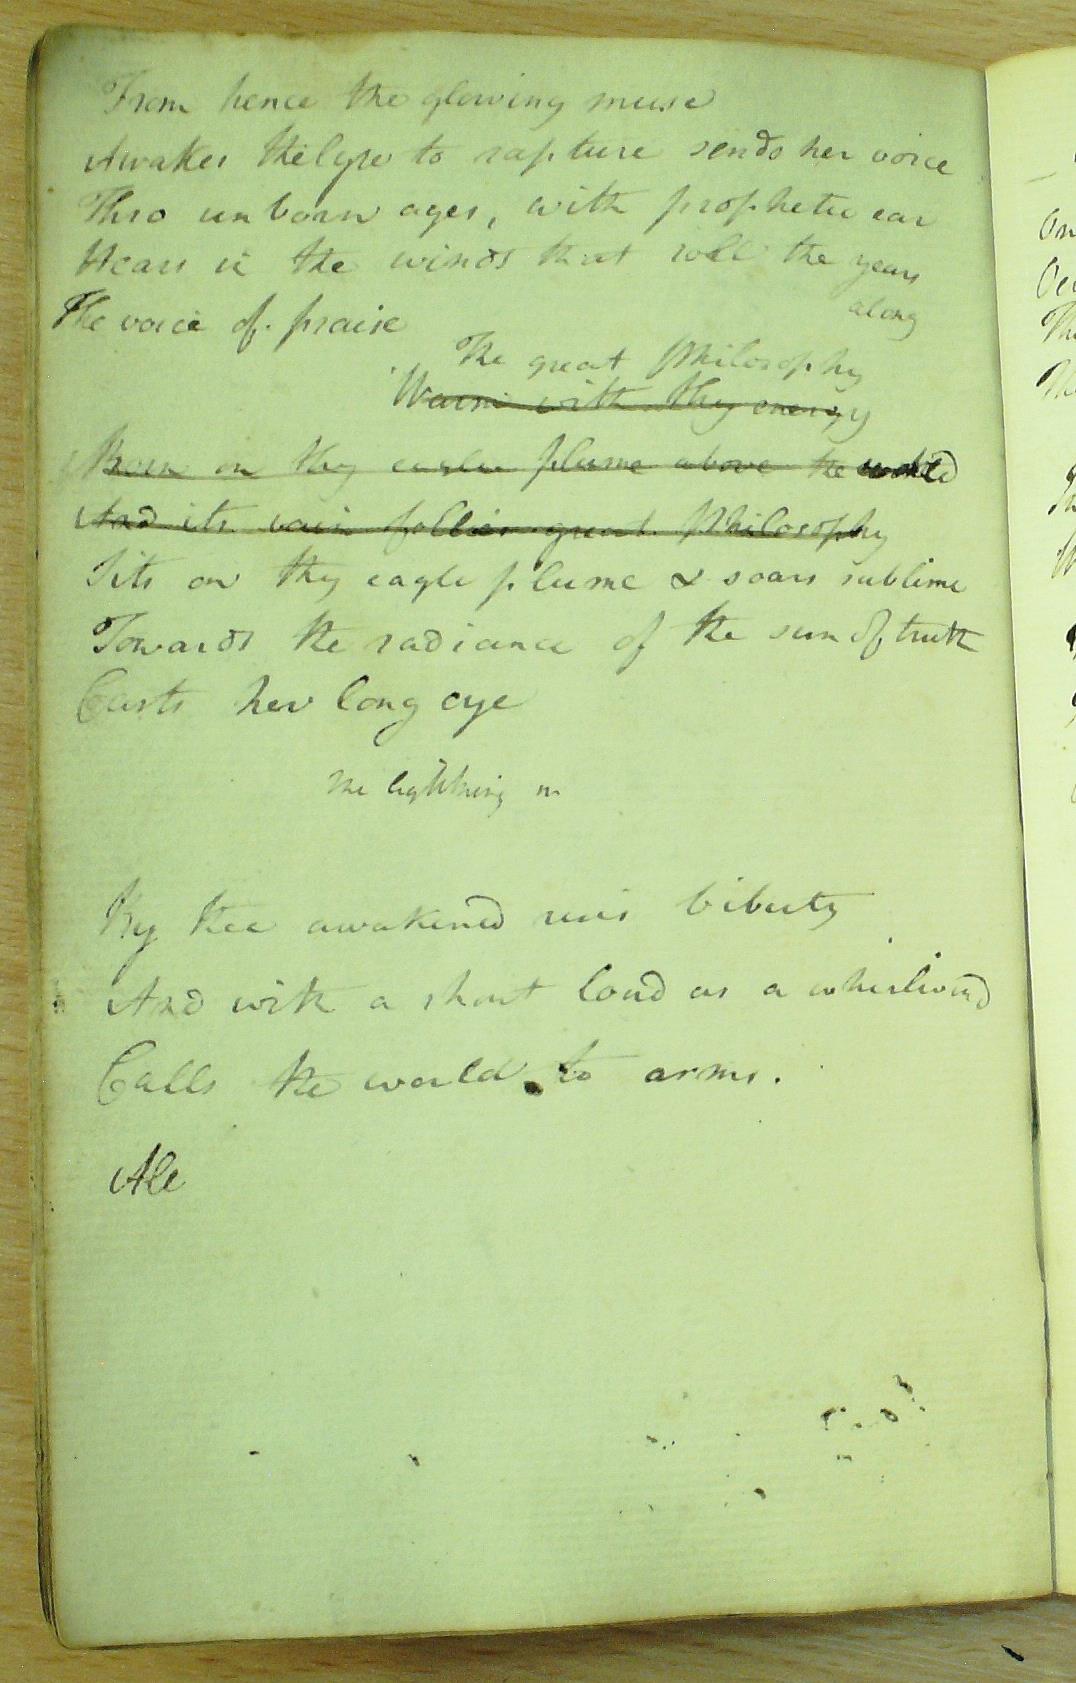 From hence the glowing muse
Awakes the lyre to rapture sends her voice
Thro unborn ages, with prophetic ear
Hears in the winds that roll the years
along
The voice of praise
The great Philosophy
Warm with thy energy
Born on thy eagle plume above the world
And its vain follies great Philosophy
Sits on thy eagle plume & soars sublime
Towards the radiance of the sun of truth
Casts her long eye
The lightning in
By thee awakened Liberty
And with a shout loud as a whirlwind
Calls the world to arms.
Ale